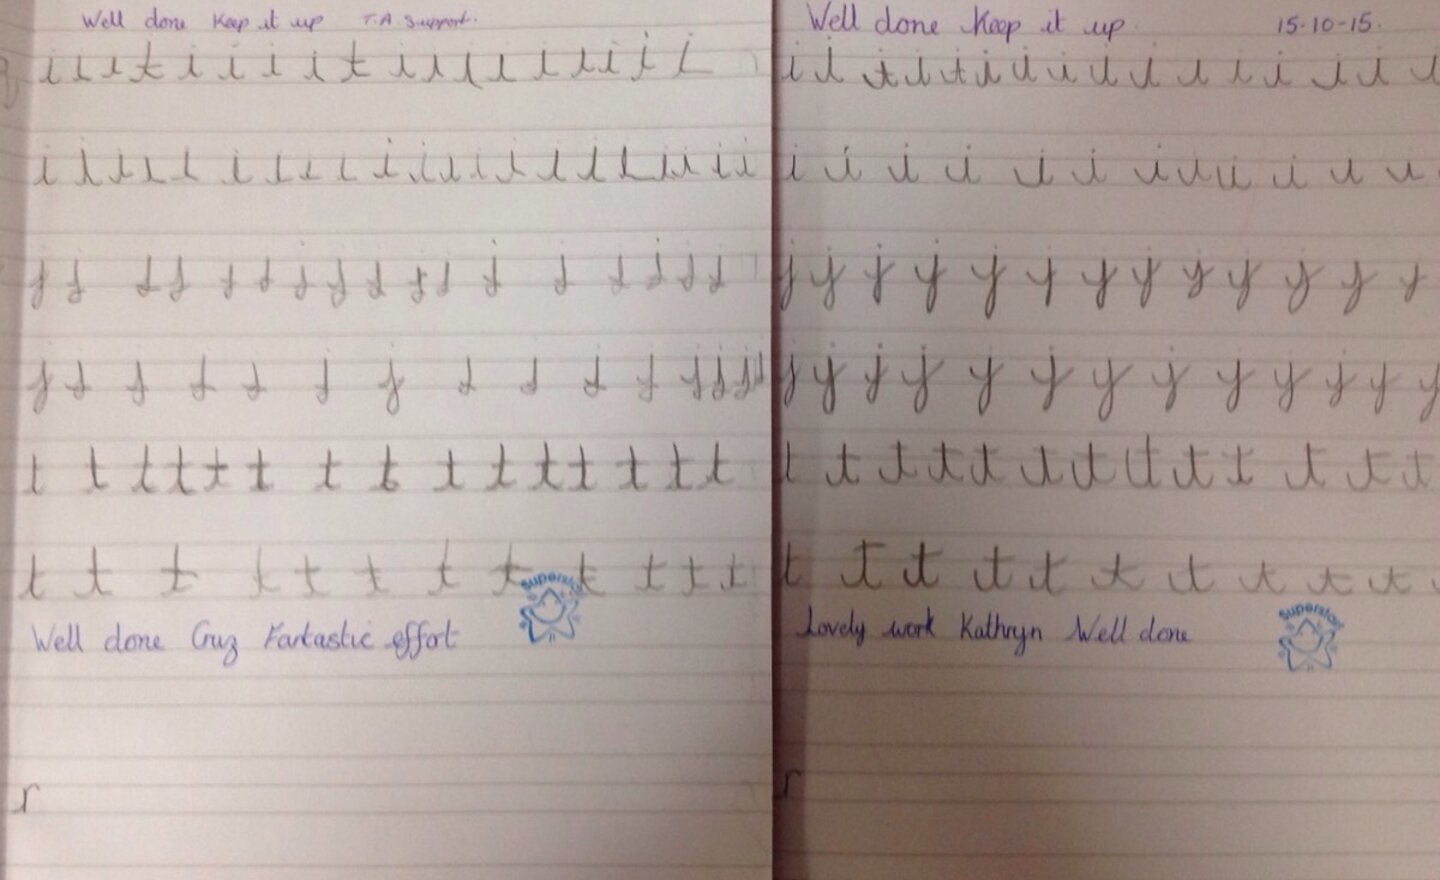 Well done Keep it up T.A Support.
i i i t i i i i t i i i i i i i i i
i i i i i i i i i i i i i i i i i i i i i
j j j j j j j j j j j j j j j j j
j j j j j j j j j j j j j j j
t t t t t t t t t t t t t t t
t t t t t t t t t t t t
superstar
Well done Cruz Fantastic effort
r
Well done Keep it up. 15-10-15.
i i t i t i i i i i i i i i i i
i i i i i i i i i i i i
j j j j j j j j j j j j j
j j j j j j j j j j j j j
t t t t t t t t t t t t t
t t t t t t t t t t
superstar
Lovely work Kathryn Well done
r